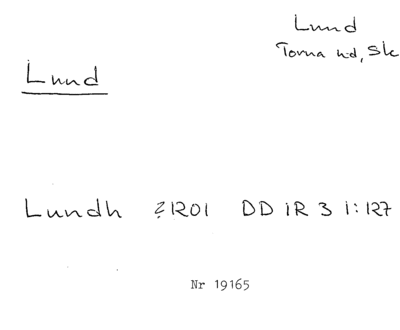 Lund
Torna hd, Sk
Lund
Lundh ?1201 DD 1R 3 1:127
Nr 19165